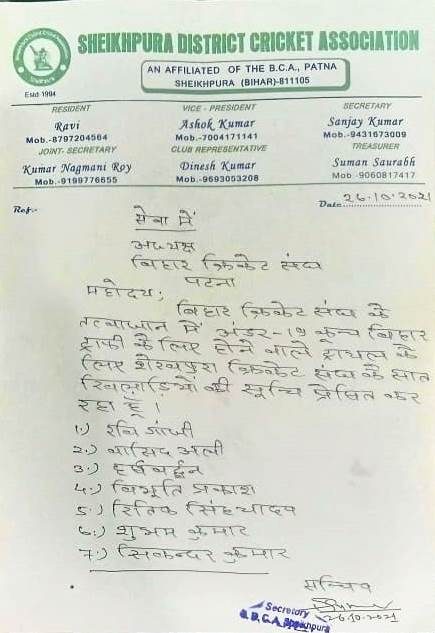 SHEIKHPURA DISTRICT CRICKET ASSOCIATION
AN AFFILIATED OF THE B.C.A., PATNA
SHEIKHPURA (BIHAR)-811105
Estd-1994
RESIDENT
Ravi
Mob.-8797204564
VICE - PRESIDENT
Ashok Kumar
Mob.-7004171141
SECRETARY
Sanjay Kumar
Mob.-9431673009
JOINT- SECRETARY
Kumar Nagmani Roy
Mob.-9199776655
CLUB REPRESENTATIVE
Dinesh Kumar
Mob.-9693053208
TREASURER
Suman Saurabh
Mob -9060817417
Ref.-
Date 26.10.2021
सेवा में
अध्यक्ष
बिहार क्रिकेट संघ
पटना
महोदय,
बिहार क्रिकेट संघ के
तत्वाधान में अंडर-19 कूच बिहार
ट्राफी के लिए होने वाले ट्रायल के
लिए शेखपुरा क्रिकेट संघ के सात
खिलाड़ियों की सूचि प्रेषित कर
रहा हूँ।
1.) रवि गांधी
2.) वासिद अली
3.) हर्षवर्द्धन
4.) विभूति प्रकाश
5.) रितिक सिंह यादव
6.) शुभम कुमार
7.) सिकन्दर कुमार
सचिव
26.10.2021
Secretary
Sheikhpura